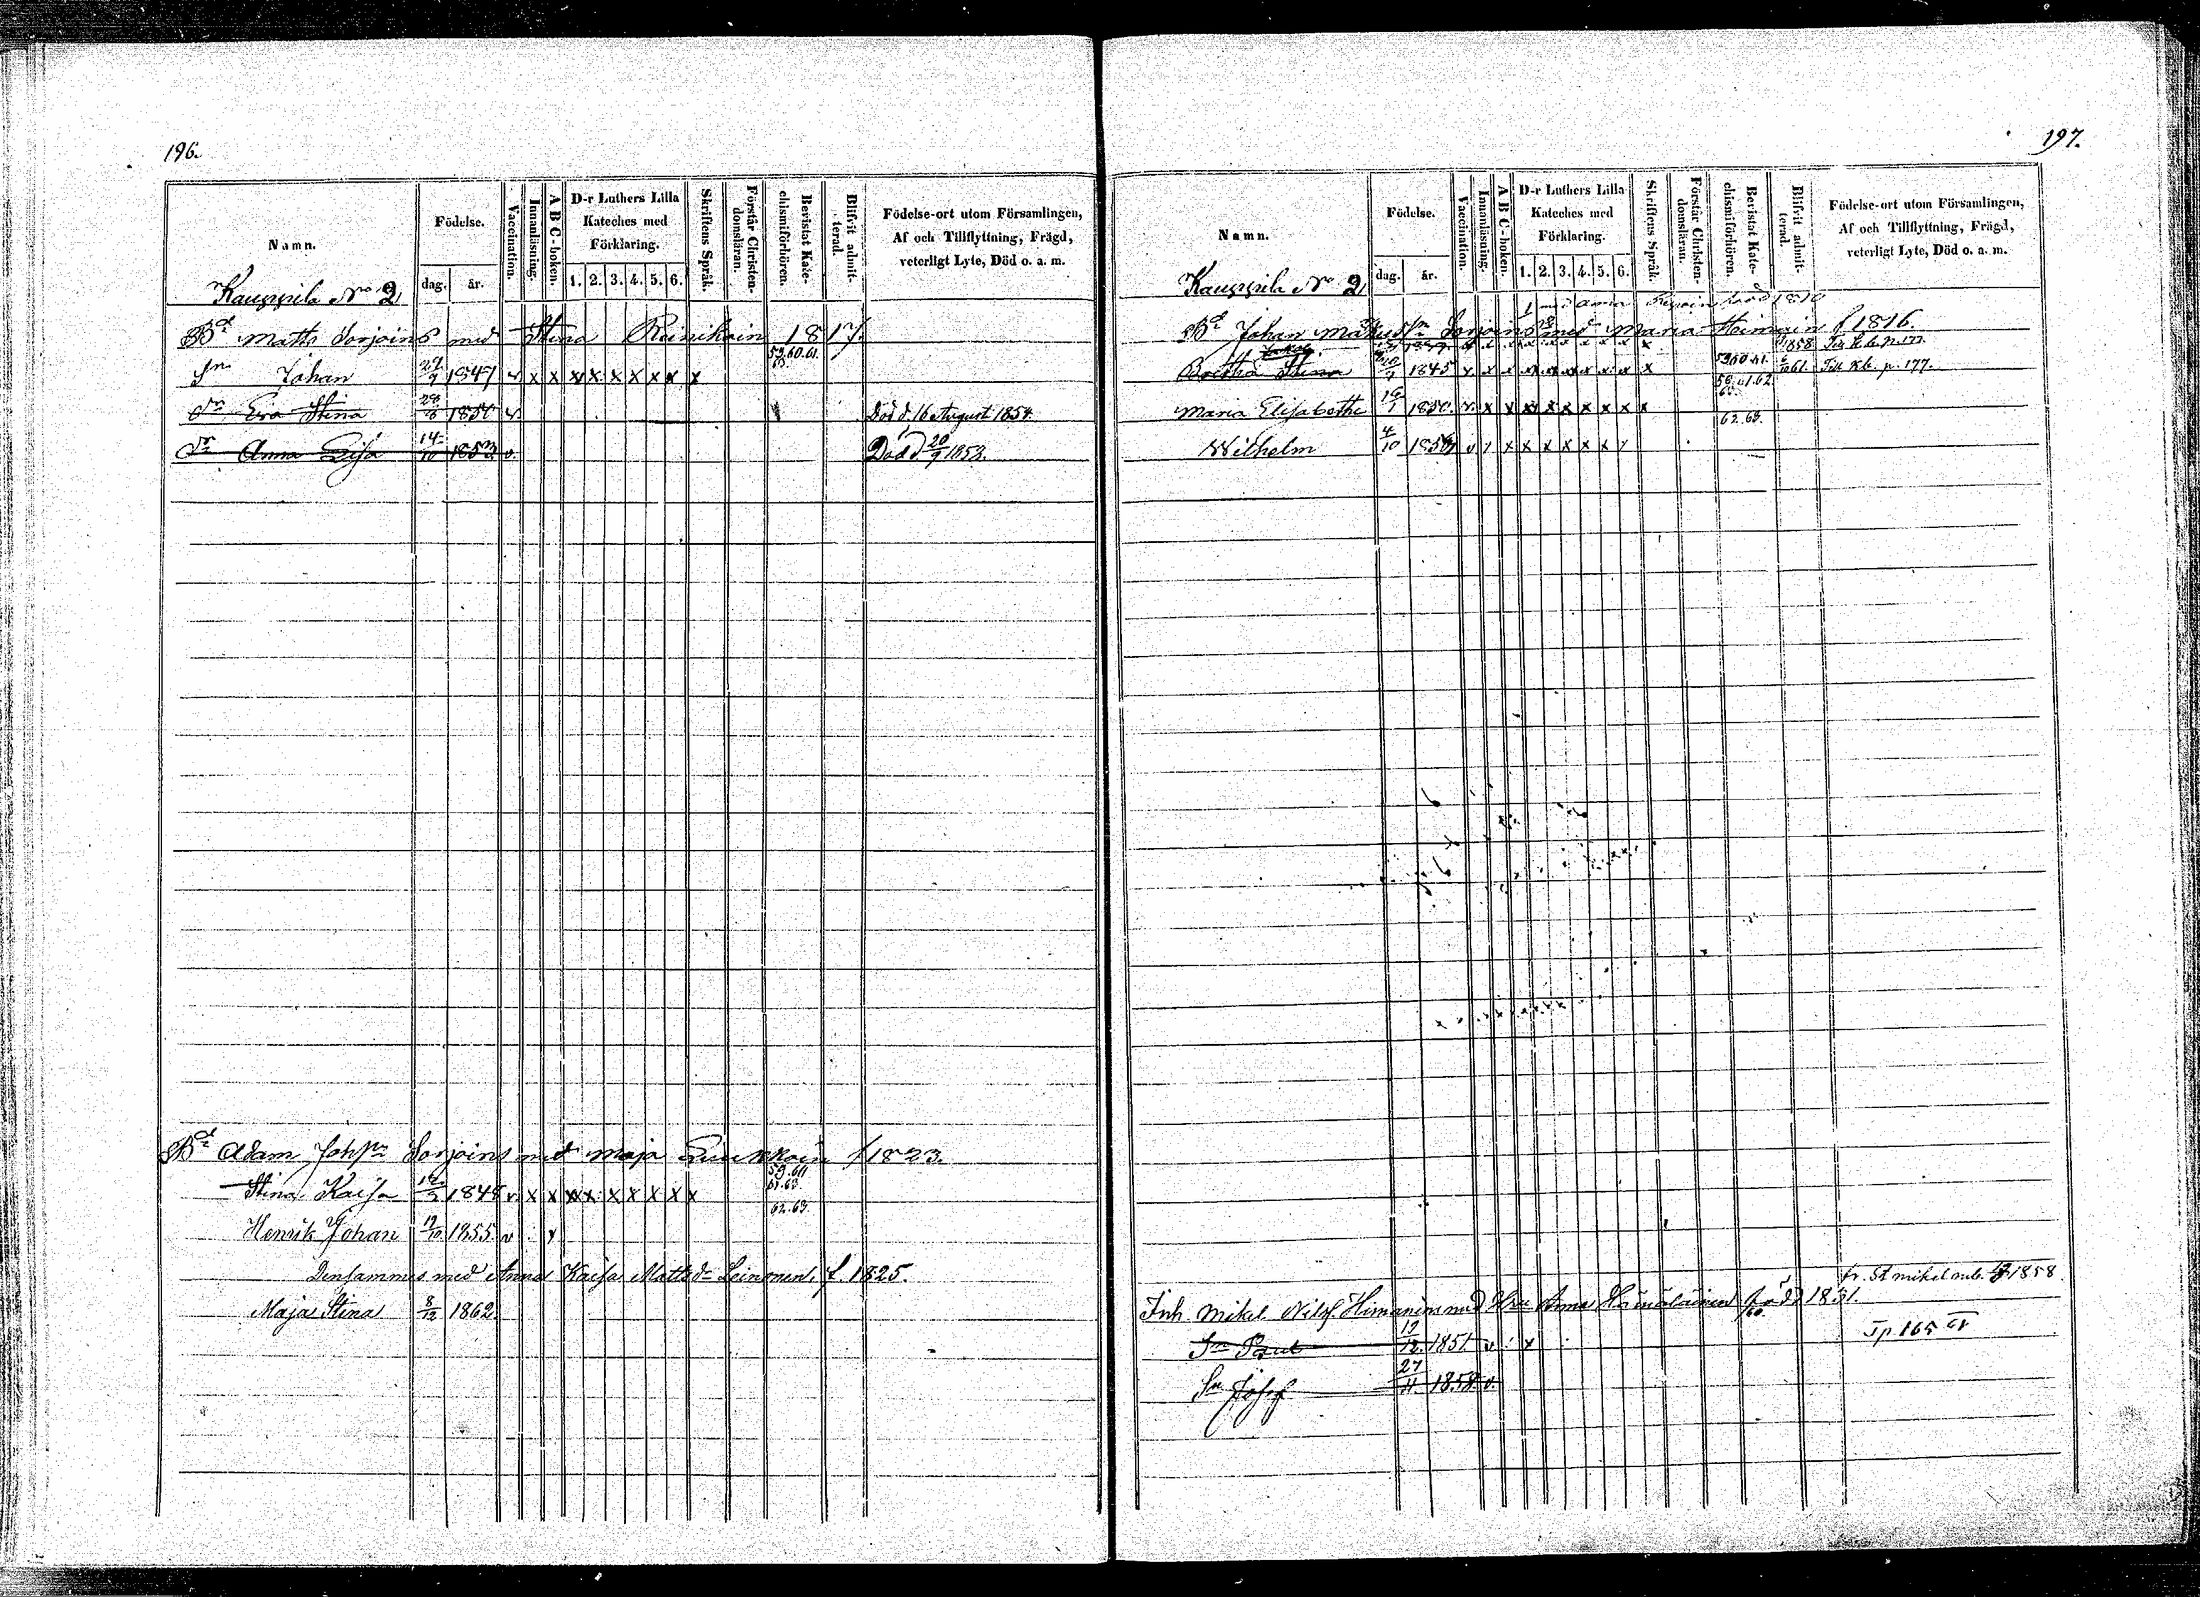 196.
Namn.
Födelse.
dag.
år.
Vaccination.
Innanläsning.
A B C-boken.
D-r Luthers Lilla
Kateches med
Förklaring.
1. 2. 3. 4. 5. 6.
Skriftens Språk.
Förstår Christen-
domsläran.
Bevistat Kate-
chismiförhören.
Blifvit admit-
terad.
Födelse-ort utom Församlingen,
Af och Tillflyttning, Frägd,
veterligt Lyte, Död o. a. m.
Kauppila No 2
Bd Matts Sorjoins med Stina Reinikain 1817.
Sn Johan 1847 v x x x x x x x x x 59.60.61. 63.
Dr Eva Stina 1850 v Död d. 16 August 1854
Dr Anna Lisa 14/10 1852 v. Död d 20/9 1853.
Bd Adam Johsn Sorjoins med Maja f 1823.
Stina Kaisa 1848 v x x x x x x x x x 59.60 61.63.
Henrik Johan 12/10 1855 v 62.63.
Densammes med Anna Kaisa Matts dr Leinonen, f. 1825.
Maja Stina 8/12 1862.
197.
Namn.
Födelse.
dag.
år.
Vaccination.
Innanläsning.
A B C-boken.
D-r Luthers Lilla
Kateches med
Förklaring.
1. 2. 3. 4. 5. 6.
Skriftens Språk.
Förstår Christen-
domsläran.
Bevistat Kate-
chismiförhören.
Blifvit admit-
terad.
Födelse-ort utom Församlingen,
Af och Tillflyttning, Frägd,
veterligt Lyte, Död o. a. m.
Kauppila No 2
1 med Anna född 1810
Bd Johan Sorjoins 2 med Maria Heimoin f. 1816.
1858 Till Kb. p. 177.
Stina 1845 v x x x x x x x x x 59.60.61. 61. Till Kb. p. 177.
Maria Elisabetha 16/1 1850. v. x x x x x x x x x 59.61.62. 63.
Wilhelm 4/10 1854 v x x x x x x x 62.63.
fr. St Mikel 1858
Inh. Mikel Nilss. Himanens med Hru Anna Hämäläinen född 1831.
Sn Paul 12/12 1851 v x Tp 165
Sn Josef 27/11 1858. v.